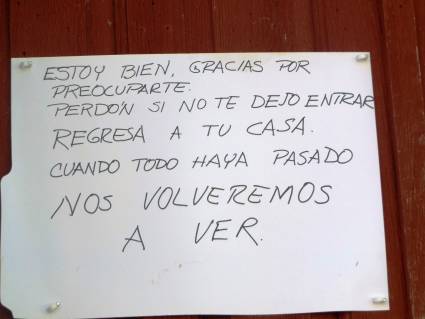 ESTOY BIEN, GRACIAS POR
PREOCUPARTE.
PERDÓN SI NO TE DEJO ENTRAR
REGRESA A TU CASA.
CUANDO TODO HAYA PASADO
NOS VOLVEREMOS
A VER.